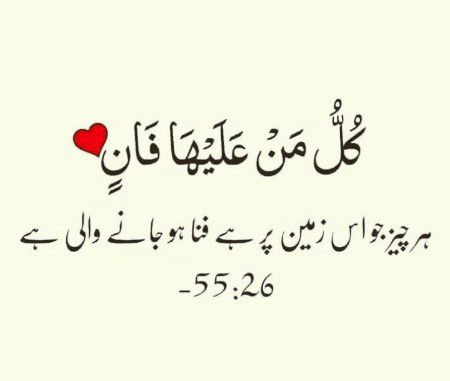 كُلُّ مَنْ عَلَيْهَا فَانٍ
ہر چیز جو اس زمین پر ہے فنا ہو جانے والی ہے
-55:26